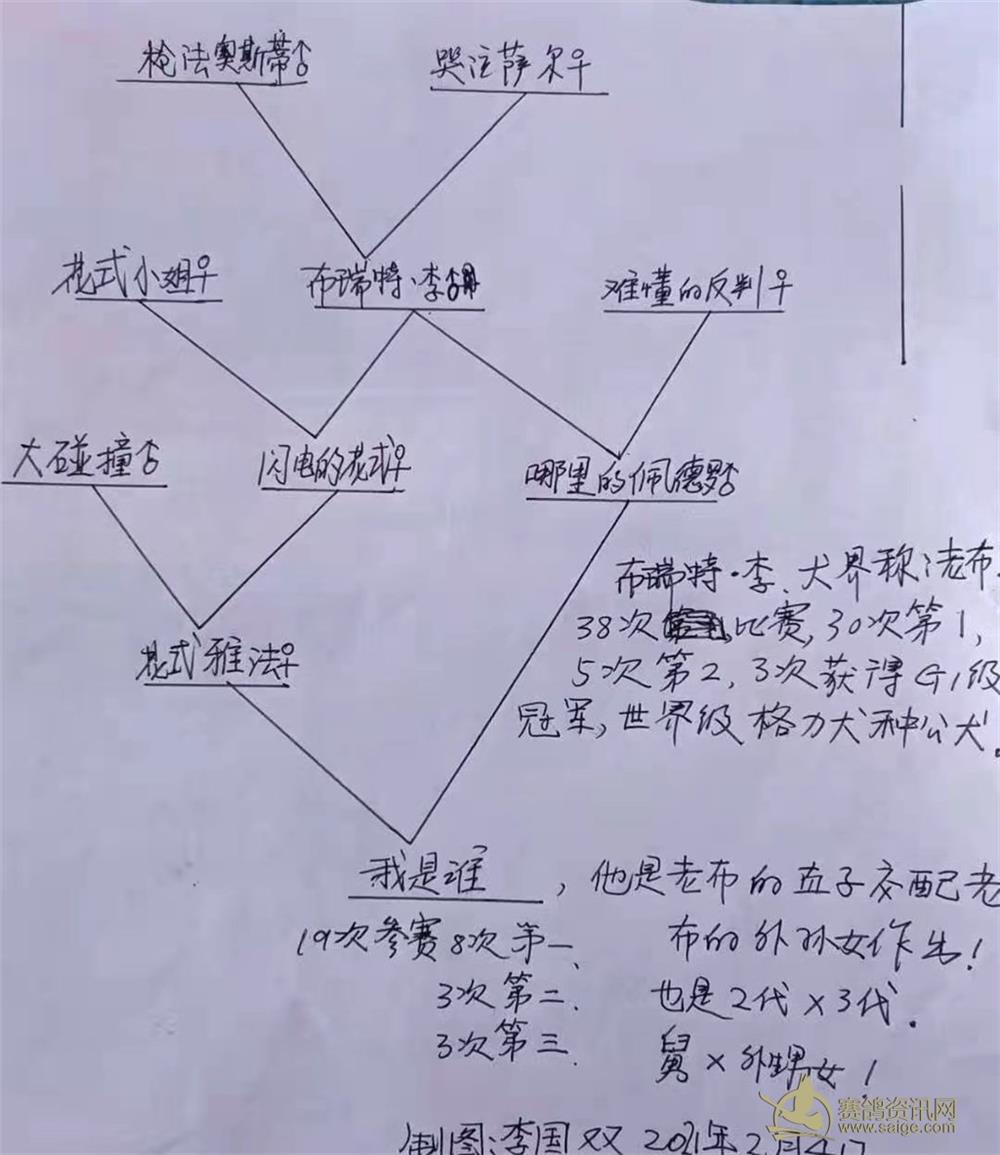 枪法奥斯蒂♂ 哭泣萨尔♀
花式小姐♀ 布瑞特·李♂ 难懂的反判♀
大碰撞♂ 闪电的花式♀ 哪里的佩德罗♂
布瑞特·李、犬界称:老布.
38次比赛,30次第1,
花式雅法♀
5次第2,3次获得G1级
冠军,世界级格力犬种公犬.
我是谁,他是老布的直子交配老
19次参赛8次第一、 布的外孙女作出!
3次第二. 也是2代×3代.
3次第三. 舅×外甥女!
制图:李国双 2021年2月4日
赛鸽资讯网
www.saige.com